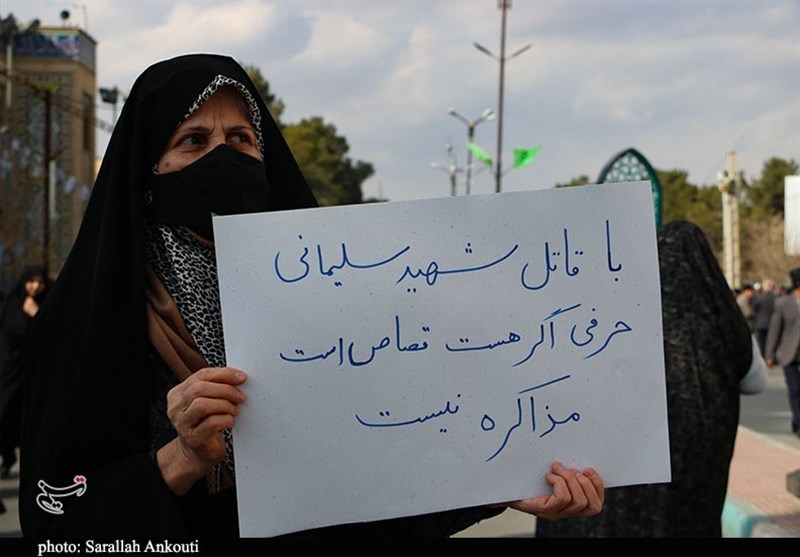 با قاتل شهید سلیمانی
حرفی اگر هست قصاص است
مذاکره نیست
تسنیم
photo: Sarallah Ankouti